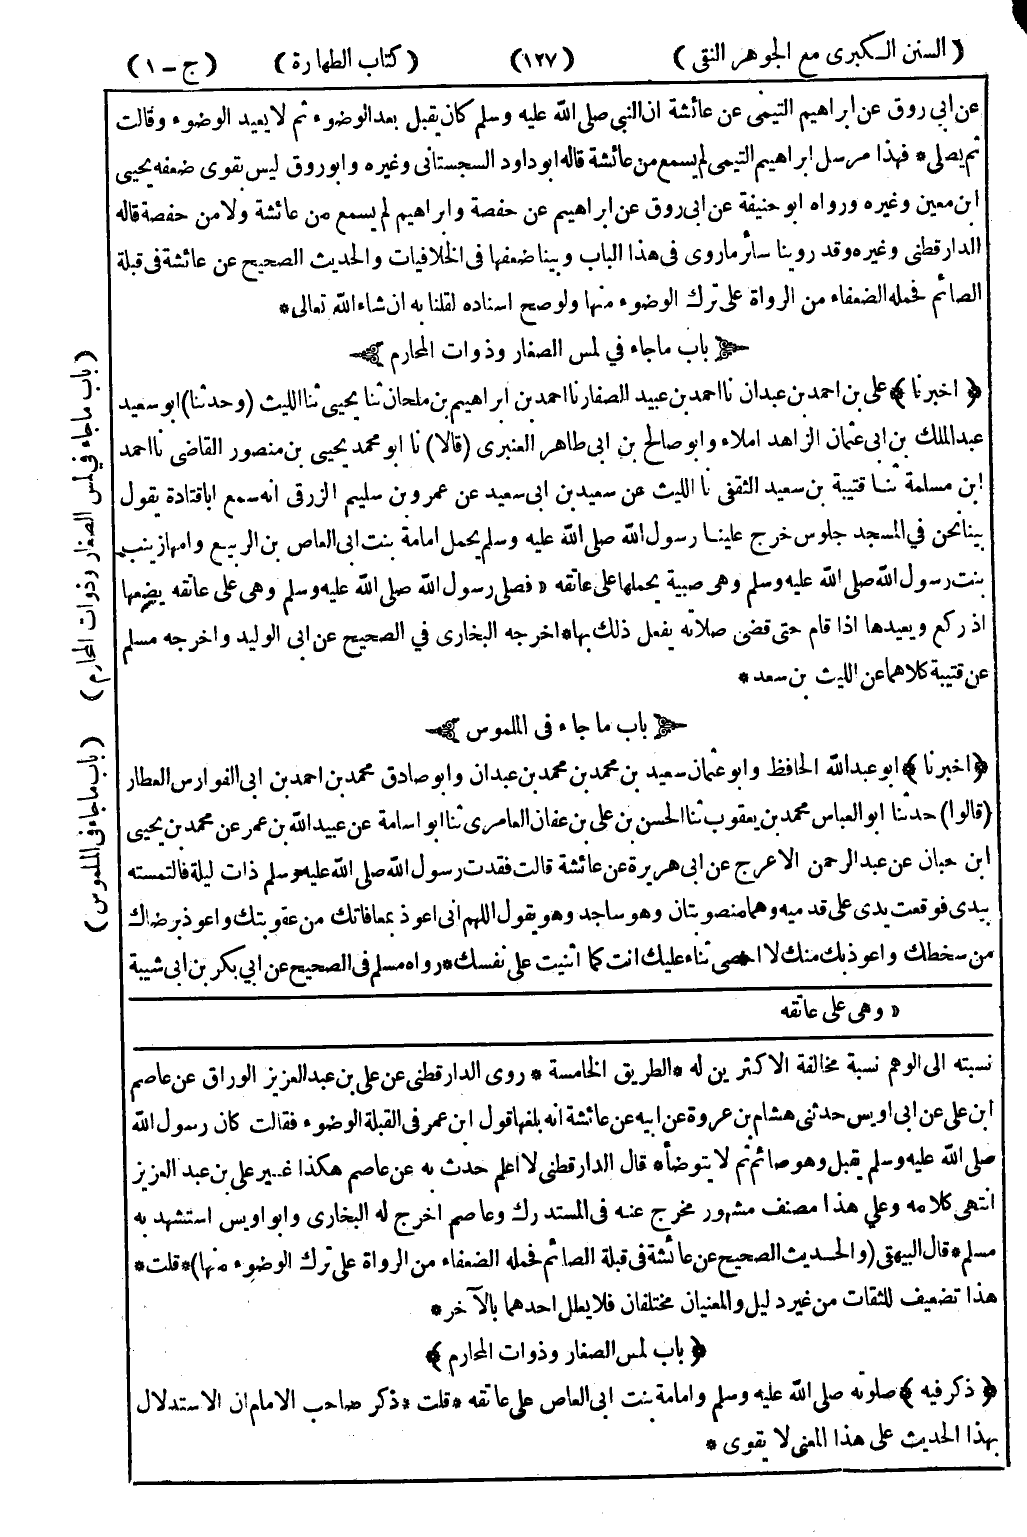 (السنن الكبرى مع الجوهر النقى) (١٢٧) (كتاب الطهارة) (ج-١)
عن ابي روق عن ابراهيم التيمى عن عائشة ان النبي صلى الله عليه وسلم كان يقبل بعد الوضوء ثم لا يعيد الوضوء وقالت
ثم يصلى * فهذا مرسل ابراهيم التيمى لم يسمع من عائشة قاله ابو داود السجستانى وغيره وابو روق ليس بقوى ضعفه يحيى
ابن معين وغيره ورواه ابو حنيفة عن ابى روق عن ابراهيم عن حفصة وابراهيم لم يسمع من عائشة ولا من حفصة قاله
الدارقطنى وغيره وقد روينا سائر ما روى فى هذا الباب وبينا ضعفها فى الخلافيات والحديث الصحيح عن عائشة فى قبلة
الصائم فحمله الضعفاء من الرواة على ترك الوضوء منها ولو صح اسناده لقلنا به ان شاء الله تعالى *
باب ماجاء في لمس الصغار وذوات المحارم
﴿ اخبرنا ﴾ على بن احمد بن عبدان نا احمد بن عبيد الصفار نا احمد بن ابراهيم بن ملحان ثنا يحيى ثنا الليث (وحدثنا) ابو سعيد
عبد الملك بن ابى عثمان الزاهد املاء وابو صالح بن ابى طاهر العنبرى (قالا) نا ابو محمد يحيى بن منصور القاضى نا احمد
ابن مسلمة ثنا قتيبة بن سعيد الثقفى نا الليث عن سعيد بن ابى سعيد عن عمرو بن سليم الزرقى انه سمع ابا قتادة يقول
بينا نحن في المسجد جلوس خرج علينا رسول الله صلى الله عليه وسلم يحمل امامة بنت ابى العاص بن الربيع وامها زينب
بنت رسول الله صلى الله عليه وسلم وهى صبية يحملها على عاتقه « فصلى رسول الله صلى الله عليه وسلم وهى على عاتقه يضعها
اذ ركع ويعيدها اذا قام حتى قضى صلاته يفعل ذلك بها * اخرجه البخارى في الصحيح عن ابى الوليد واخرجه مسلم
عن قتيبة كلاهما عن الليث بن سعد *
باب ما جاء فى الملموس
﴿ اخبرنا ﴾ ابو عبد الله الحافظ وابو عثمان سعيد بن محمد بن محمد بن عبدان وابو صادق محمد بن احمد بن ابى الفوارس العطار
(قالوا) حدثنا ابو العباس محمد بن يعقوب ثنا الحسن بن على بن عفان العامرى ثنا ابو اسامة عن عبيد الله بن عمر عن محمد بن يحيى
ابن حبان عن عبد الرحمن الاعرج عن ابى هريرة عن عائشة قالت فقدت رسول الله صلى الله عليه وسلم ذات ليلة فالتمسته
بيدى فوقعت يدى على قدميه وهما منصوبتان وهو ساجد وهو يقول اللهم انى اعوذ بمعافاتك من عقوبتك واعوذ برضاك
من سخطك واعوذ بك منك لا احصى ثناء عليك انت كما اثنيت على نفسك * رواه مسلم فى الصحيح عن ابي بكر بن ابى شيبة
« وهى على عاتقه
نسبته الى الوهم نسبة مخالفة الاكثرين له * الطريق الخامسة * روى الدارقطنى عن على بن عبد العزيز الوراق عن عاصم
ابن على عن ابى اويس حدثنى هشام بن عروة عن ابيه عن عائشة انه بلغها قول ابن عمر فى القبلة الوضوء فقالت كان رسول الله
صلى الله عليه وسلم يقبل وهو صائم ثم لا يتوضأ * قال الدارقطنى لا اعلم حدث به عن عاصم هكذا غير على بن عبد العزيز
انتهى كلامه وعلي هذا مصنف مشهور مخرج عنه فى المستدرك وعاصم اخرج له البخارى وابو اويس استشهد به
مسلم * قال البيهقى (والحديث الصحيح عن عائشة فى قبلة الصائم فحمله الضعفاء من الرواة على ترك الوضوء منها) * قلت *
هذا تضعيف للثقات من غير دليل والمعنيان مختلفان فلا يعلل احدهما بالآخر *
﴿ باب لمس الصغار وذوات المحارم ﴾
﴿ ذكر فيه ﴾ صلوته صلى الله عليه وسلم وامامة بنت ابى العاص على عاتقه * قلت * ذكر صاحب الامام ان الاستدلال
بهذا الحديث على هذا المعنى لا يقوى *
(باب ماجاء في لمس الصغار وذوات المحارم)
(باب ماجاء فى الملموس)